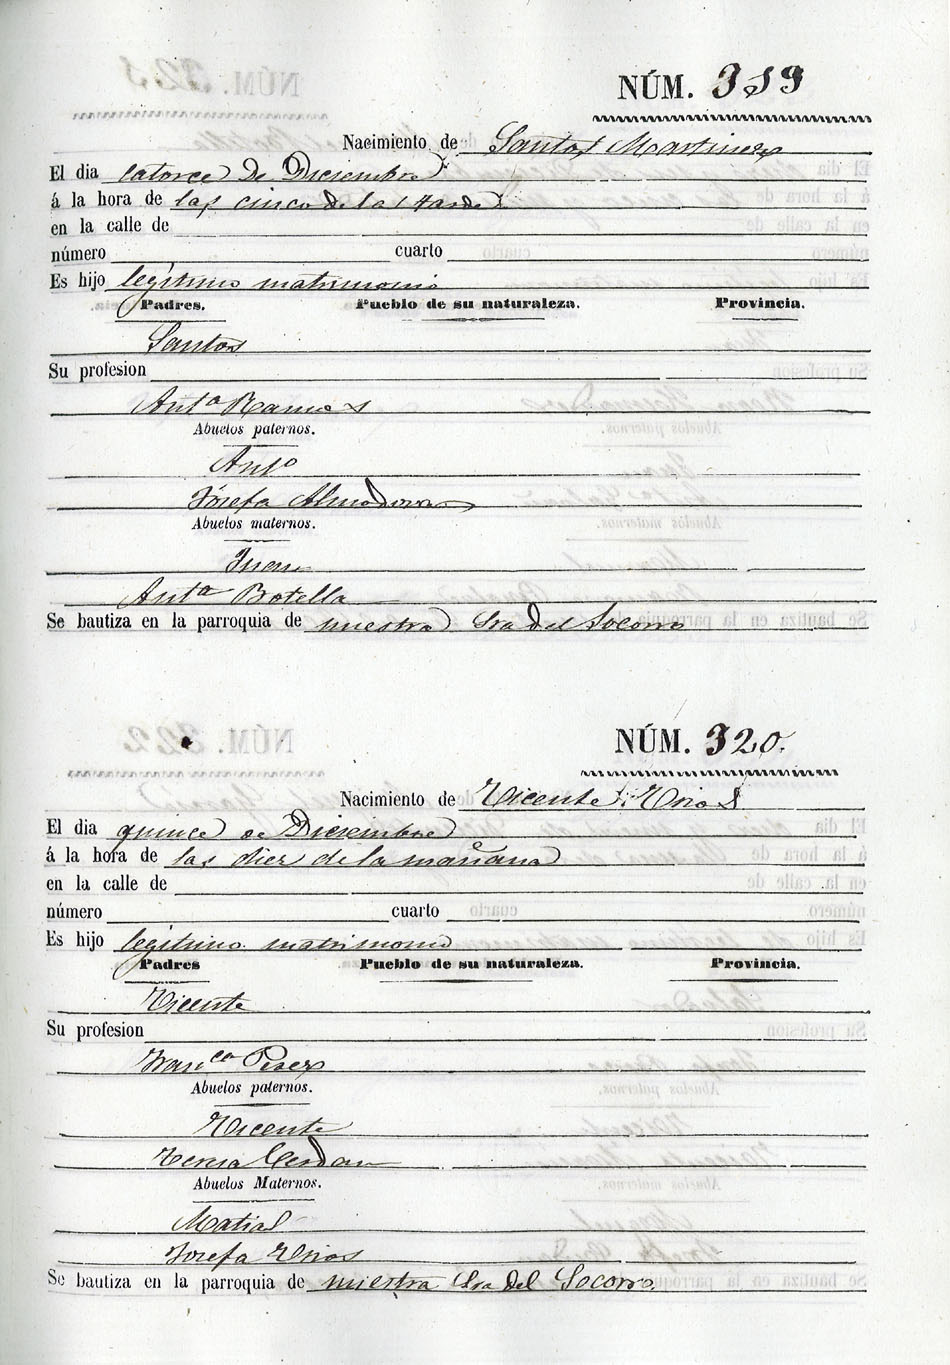 NÚM. 319
Nacimiento de Santos Martinez
El dia catorce de Diciembre
á la hora de las cinco de la tarde
en la calle de
número cuarto
Es hijo legítimo matrimonio
Padres. Pueblo de su naturaleza. Provincia.
Santos
Su profesion
Antª Ramos
Abuelos paternos.
Antº
Josefa Almodovar
Abuelos maternos.
Juan
Antª Botella
Se bautiza en la parroquia de nuestra Sra del Socorro
NÚM. 320.
Nacimiento de Vicente Rios
El dia quince de Diciembre
á la hora de las diez de la mañana
en la calle de
número cuarto
Es hijo legitimo matrimonio
Padres Pueblo de su naturaleza. Provincia.
Vicente
Su profesion
Franca Perez
Abuelos paternos.
Vicente
Teresa Cerdan
Abuelos Maternos.
Matias
Josefa Rios
Se bautiza en la parroquia de nuestra Sra del Socorro.